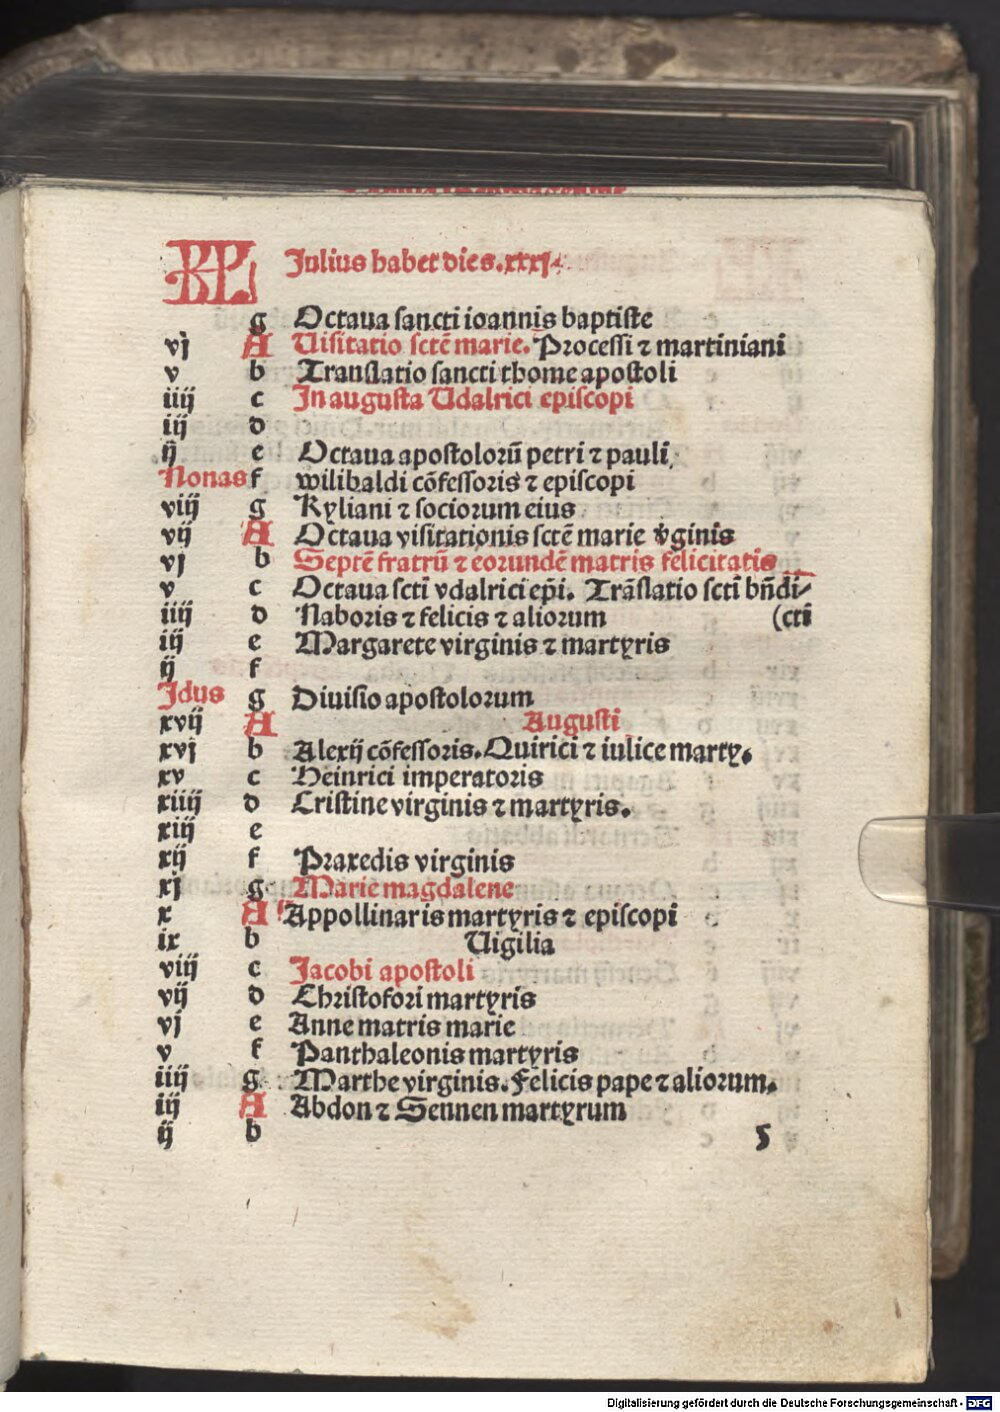 KL Julius habet dies.xxxj.
g Octaua sancti ioannis baptiste
vj A Uisitatio sctē marie. Processi ⁊ martiniani
v b Translatio sancti thome apostoli
iiij c In augusta Udalrici episcopi
iij d
ij e Octaua apostolorū petri ⁊ pauli
Nonas f wilibaldi cōfessoris ⁊ episcopi
viij g Kyliani ⁊ sociorum eius
vij A Octaua visitationis sctē marie v̄ginis
vj b Septē fratrū ⁊ eorundē matris felicitatis
v c Octaua scti vdalrici ep̄i. Trāslatio scti bn̄di⸗
iiij d Naboris ⁊ felicis ⁊ aliorum (cti
iij e Margarete virginis ⁊ martyris
ij f
Idus g Diuisio apostolorum
xvij A Augusti
xvj b Alexij cōfessoris. Quirici ⁊ iulice marty.
xv c Heinrici imperatoris
xiiij d Cristine virginis ⁊ martyris.
xiij e
xij f Praxedis virginis
xj g Marie magdalene
x A Appollinaris martyris ⁊ episcopi
ix b Uigilia
viij c Jacobi apostoli
vij d Christofori martyris
vj e Anne matris marie
v f Panthaleonis martyris
iiij g Marthe virginis. Felicis pape ⁊ aliorum.
iij A Abdon ⁊ Sennen martyrum
ij b 5
Digitalisierung gefördert durch die Deutsche Forschungsgemeinschaft - DFG